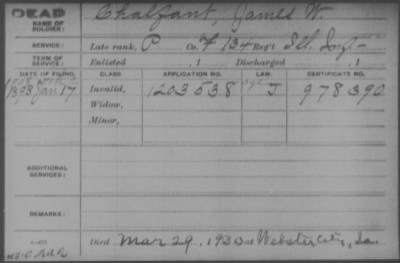 DEAD
NAME OF SOLDIER: Chalfant, James W.
SERVICE: Late rank, P Co. F 134 Reg't Ill. Inf.
TERM OF SERVICE: Enlisted , 1 Discharged , 1
DATE OF FILING. CLASS. APPLICATION NO. LAW. CERTIFICATE NO.
1898 Jan 17 Invalid, 1203538 J 978390
Widow,
Minor,
ADDITIONAL SERVICES:
REMARKS:
Died Mar 29, 1930 at Webster City, Ia.